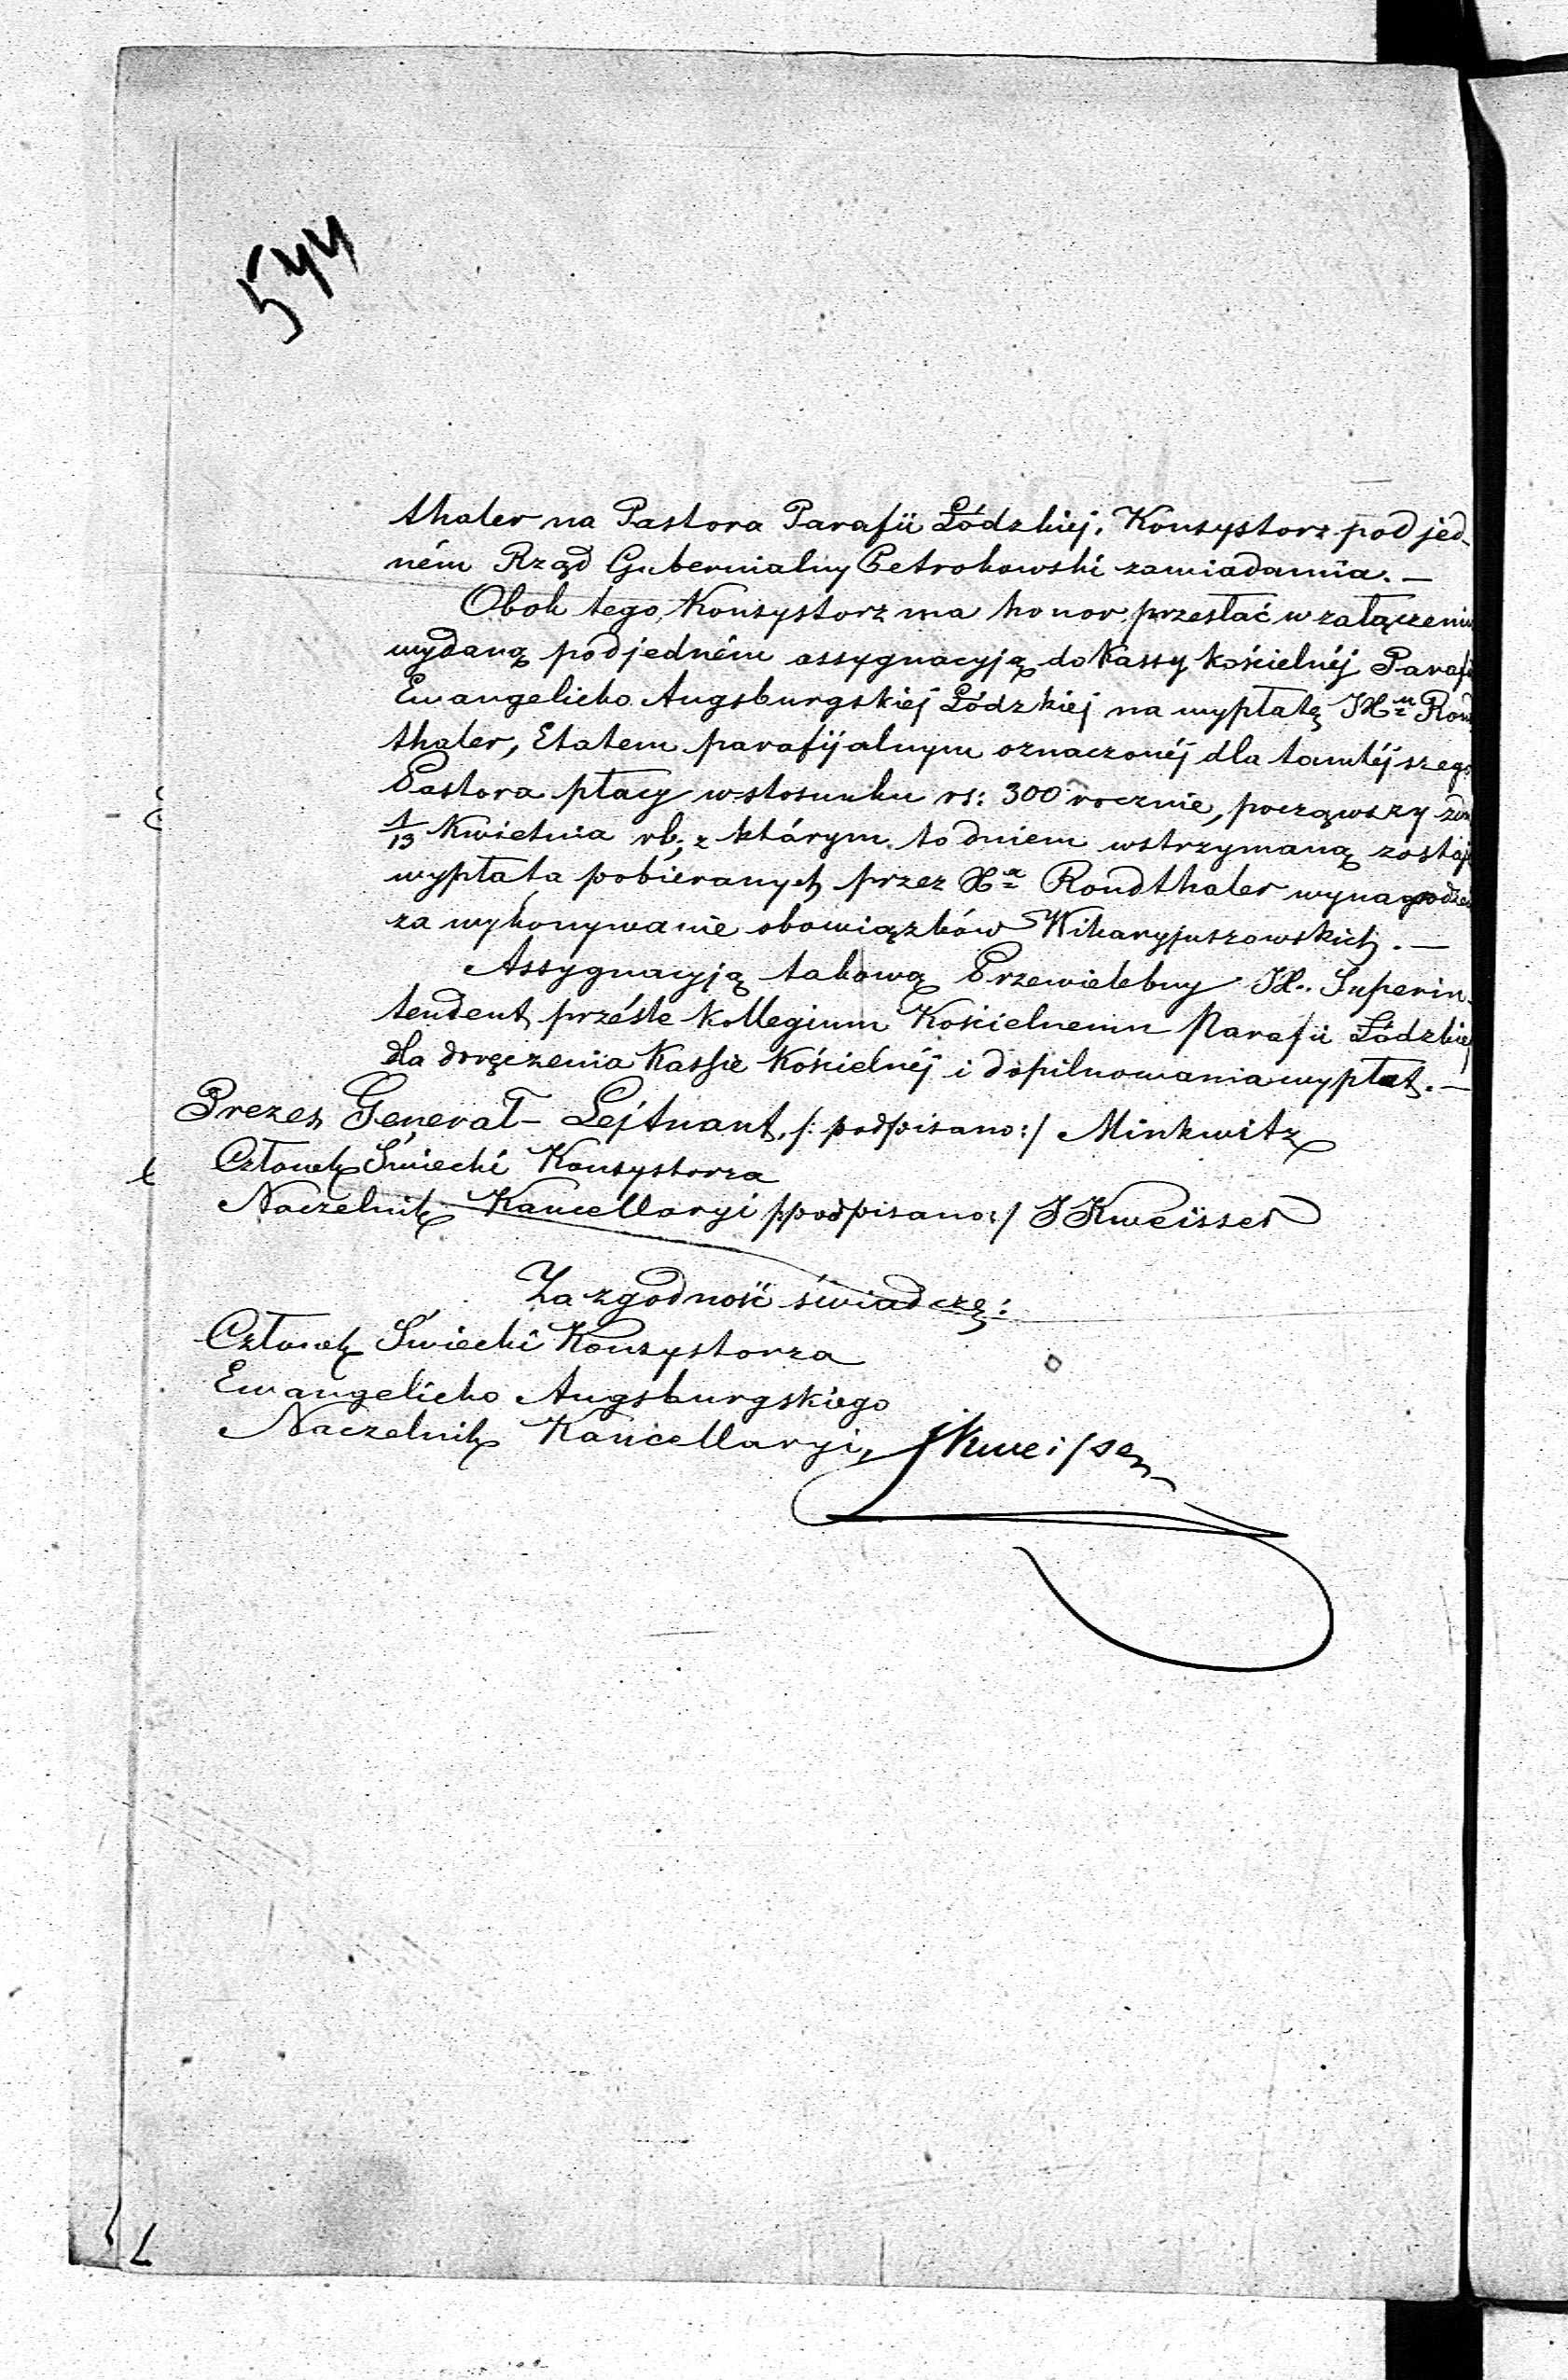 544
thaler na Pastora Parafii Łódzkiej, Konsystorz pod jed-
ném Rząd Gubernialny Petrokowski zawiadamia. —
Obok tego, Konsystorz ma honor przesłać w załączeniu
wydaną pod jedném assygnacyją do Kassy kościelnéj Parafi
Ewangelicko Augsburgskiéj Łódzkiej na wypłatę JX Rond
thaler, Etatem parafijalnym oznaczonéj dla tamtéjszego
Pastora płacy w stosunku rs: 300 rocznie, począwszy
1/13 Kwietnia rb; z którym to dniem wstrzymaną zostaje
wypłata pobieranych przez Xa Rondthaler wynagrodzeń
za wykonywanie obowiązków Wikaryjuszowskich. —
Assygnacyją takową Przewielebny JX. Superin-
tendent prześle Kollegium Kościelnemu Parafii Łódzkiej
dla doręczenia Kassie Kościelnéj i dopilnowania wypłat. —
Prezes Generał-Lejtnant, /: podpisano:/ Minkwitz
Członek Świecki Konsystorza
Naczelnik Kancellaryi /:podpisano:/ J Kweisser
Za zgodność świadczę:
Członek Świecki Konsystorza
Ewangelicko Augsburgskiego
Naczelnik Kancellaryi,